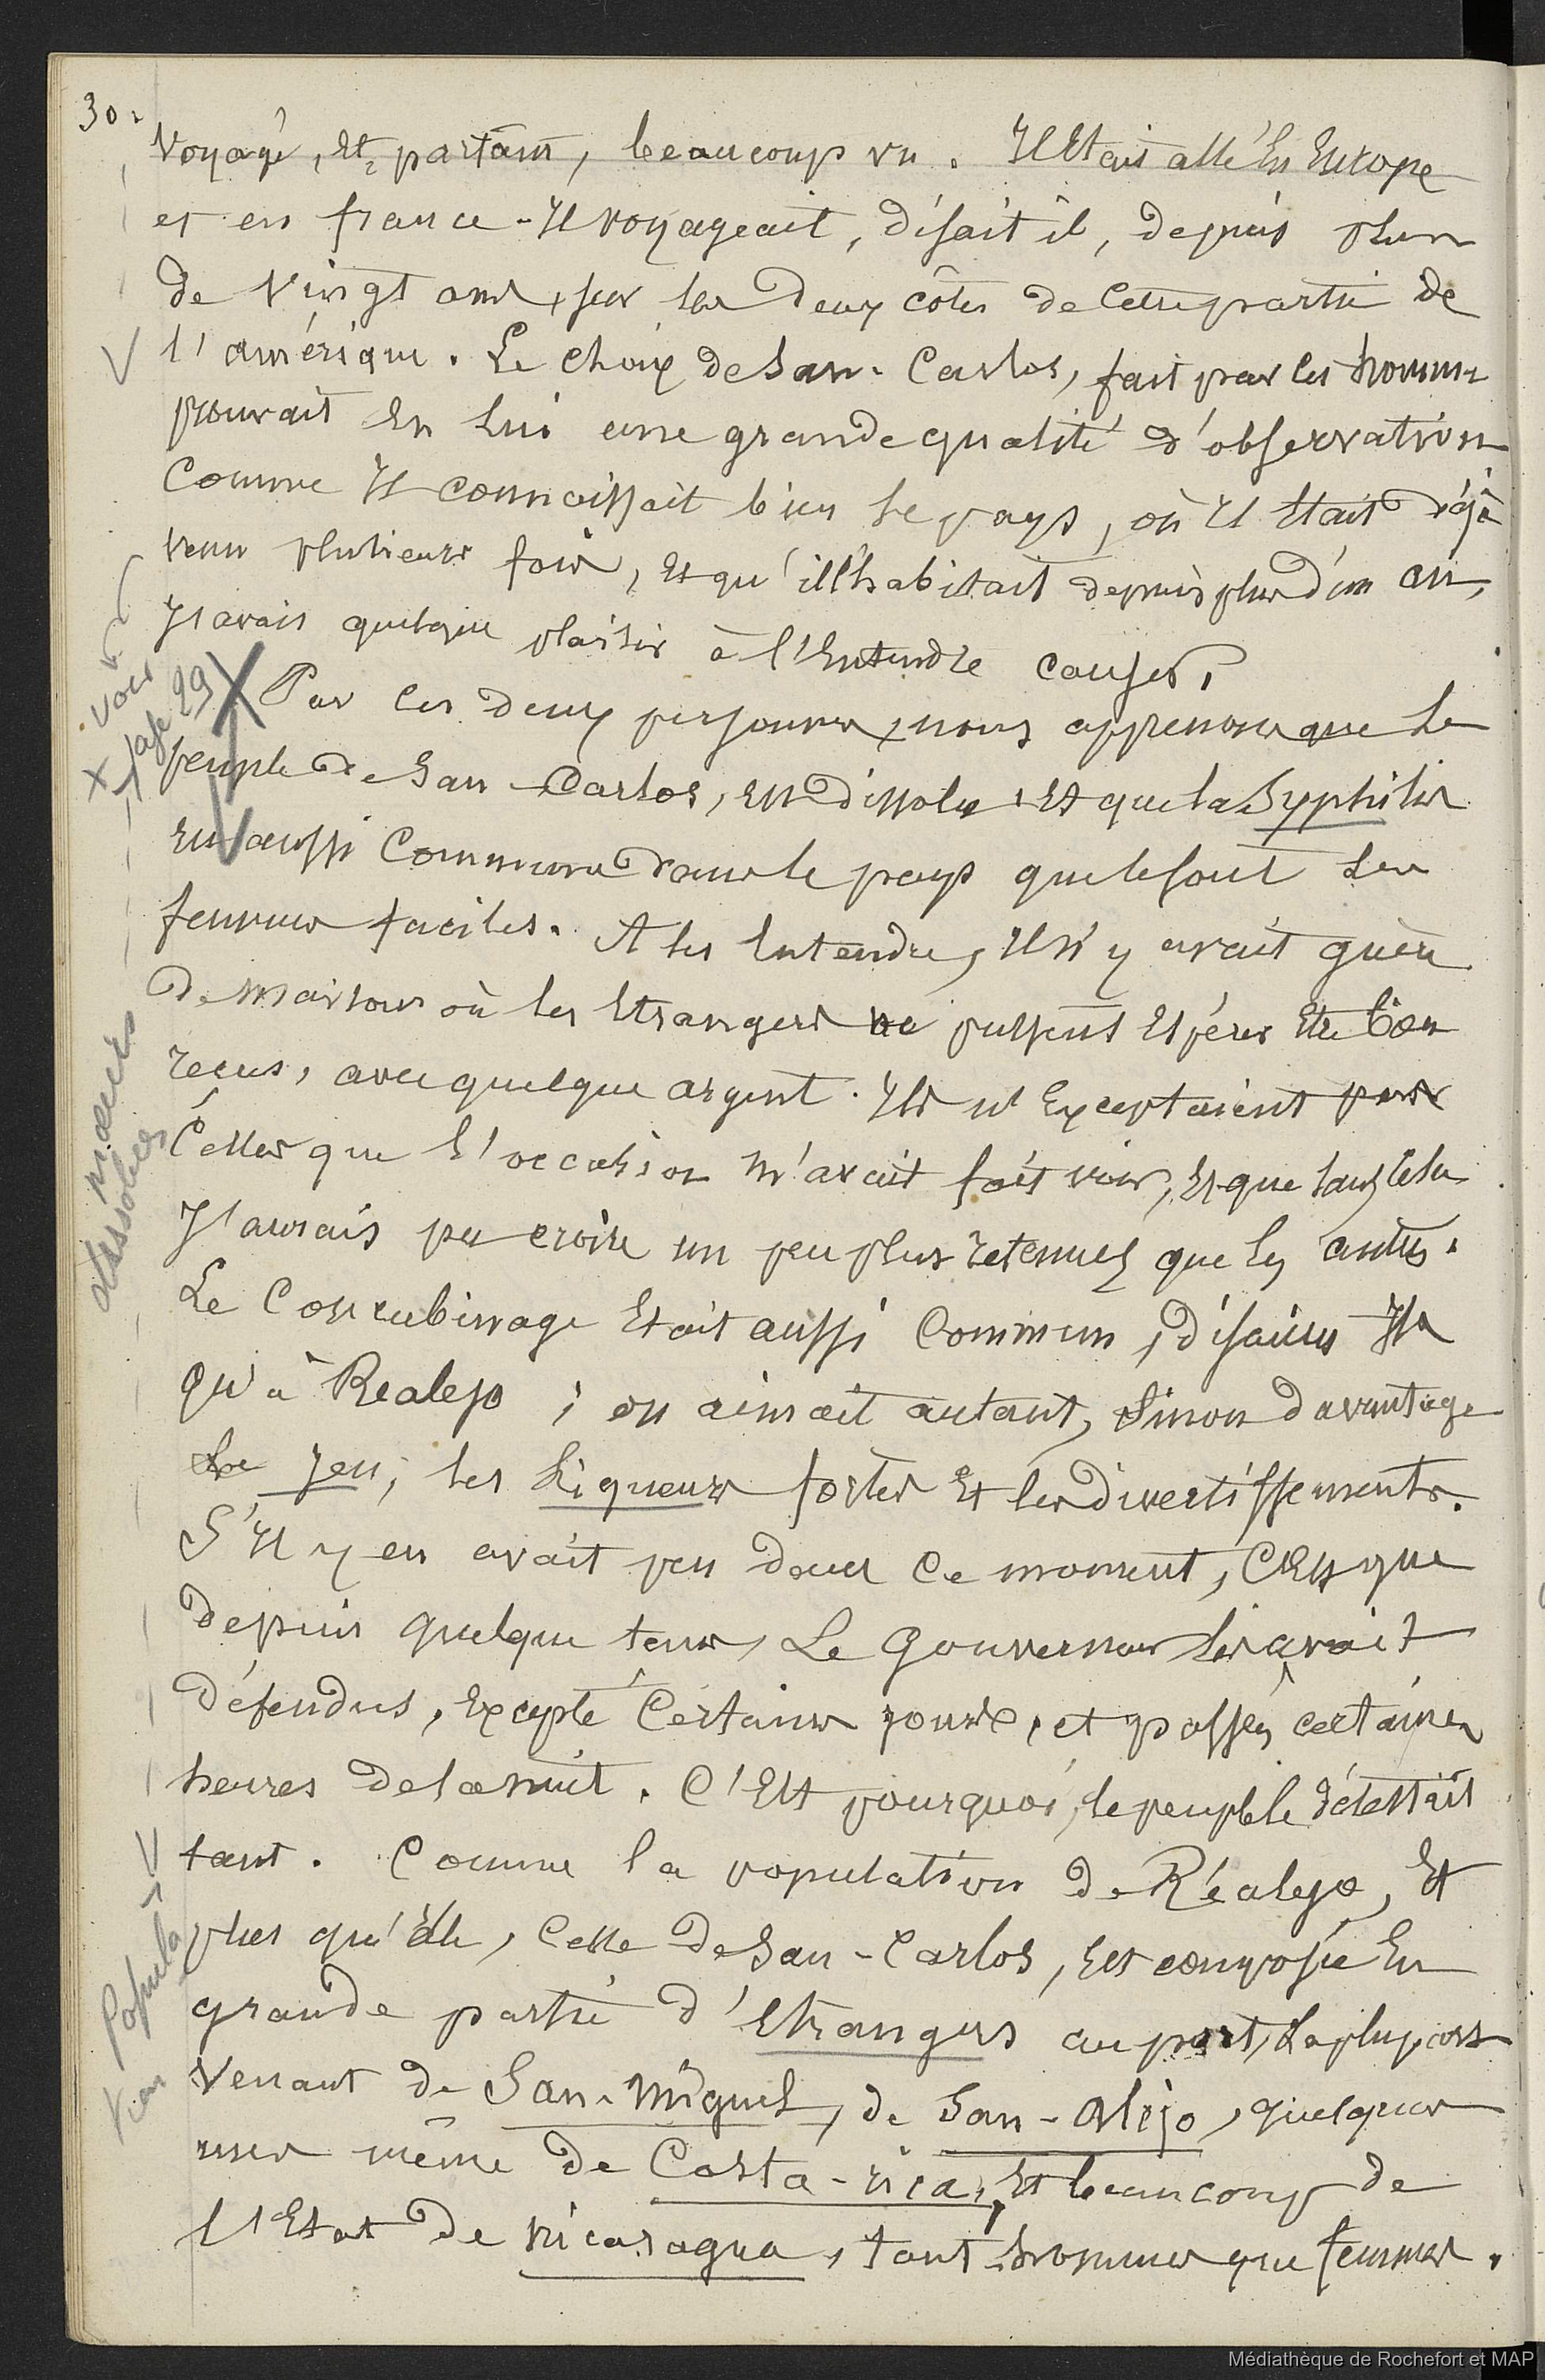 30.
voyagé, et, partant, beaucoup vu. Il était allé en Europe
et en france - Il voyageait, disait il, depuis plus
de vingt ans, sur les deux côtes de cette partie de
l'amérique. Le choix de San-Carlos, fait par cet homme
prouvait en lui une grande qualité d'observation
Comme il connaissait bien le pays, où il était déjà
venu plusieurs fois, et qu'il l'habitait depuis plus d'un an,
J'avais quelque plaisir à l'entendre causer.
Par ces deux personnes, nous apprenons que le
peuple de San-Carlos, est dissolu, et que la Syphilis
est aussi Commune dans le pays que le sont les
femmes faciles. A les entendre, Il n'y avait guère
de maisons où les étrangers ne pussent espérer être bien
recus, avec quelque argent. Ils n'exceptaient pas
Celles que l'occasion m'avait fait voir, et que sans cela
J'aurais pu croire un peu plus retenues que les autres.
Le Concubinage était aussi Commun, disaient Ils
qu'à Realejo ; on aimait autant, sinon davantage
le jeu, les liqueurs fortes et les divertissements.
S'Il y en avait peu dans ce moment, C'est que
depuis quelque tems, Le Gouverneur les avait
défendus, excepté Certains jours, et passées certaines
heures de la nuit. C'est pourquoi, le peuple le détestait
tant. Comme la population de Réalejo, et
plus qu'elle, celle de San-Carlos, est composée en
grande partie d'étrangers au port, la plupart
venant de San-Miguel, de San-Alejo, quelques
uns même de Costa-rica, et beaucoup de
l'Etat de nicaragua, tant hommes que femmes.
x voir
page 29
moeurs
dissolues
Popula
Médiathèque de Rochefort et MAP